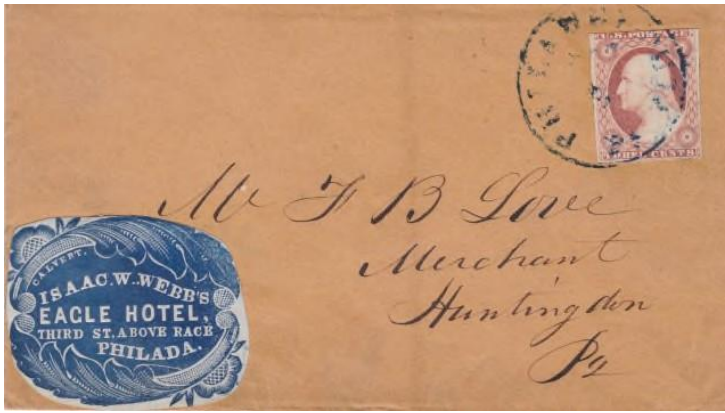 U.S. POSTAGE
THREE CENTS
Mr F B Love
Merchant
Huntingdon
Pa
CALVERT.
ISAAC. W. WEBB'S
EAGLE HOTEL,
THIRD ST. ABOVE RACE
PHILADA.